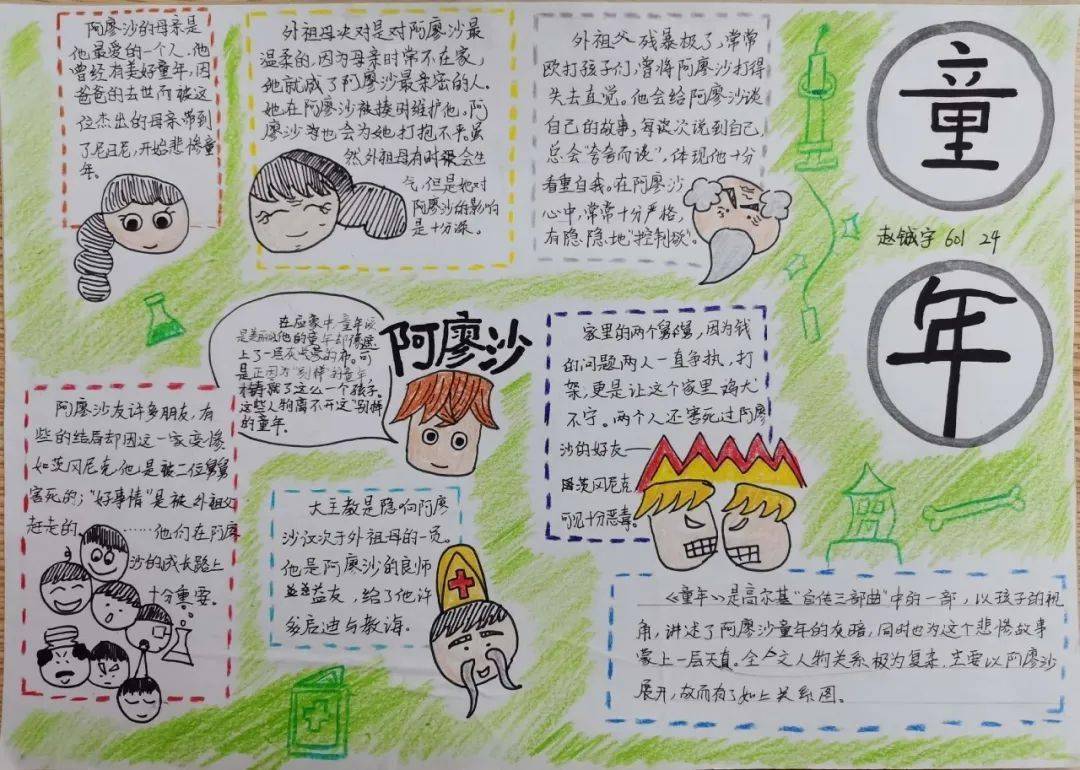 童
年
赵铖宇 601 24
阿廖沙的母亲是
他最爱的一个人,他
曾经有美好童年,因
爸爸的去世而被这
位杰出的母亲带到
了尼日尼,开始悲惨童
年。
外祖母决对是对阿廖沙最
温柔的,因为母亲时常不在家,
她就成了阿廖沙最亲密的人。
她在阿廖沙被揍时维护他,阿
廖沙有时也会为她打抱不平。虽
然外祖母有时很会生
气,但是她对
阿廖沙的影响
是十分深。
外祖父残暴极了,常常
欧打孩子们,曾将阿廖沙打得
失去直觉。他会给阿廖沙谈
自己的故事,每次说到自己,
总会“夸夸而谈”,体现他十分
看重自我。在阿廖沙
心中,常常十分严格,
有隐隐地“控制欲”。
阿廖沙
在应象中,童年该
是美丽的,他的童年却像是
上了一层灰色的布。可
是正因为“别样”的童年
才铸就了这么一个孩子。
这些人物离不开这“别样”
的童年。
家里的两个舅舅,因为钱
的问题,两人一直争执,打
架,更是让这个家里鸡犬
不宁。两个人还害死过阿廖
沙的好友——
茨冈尼克
可见十分恶毒。
阿廖沙友许多朋友,有
些的结局却因这一家变惨.
如茨冈尼克,他是被二位舅舅
害死的;“好事情”是被外祖父
赶走的,……他们在阿廖
沙的成长路上
十分重要。
大主教是隐向阿廖
沙议次于外祖母的一员。
他是阿廖沙的良师
益友,给了他许
多启迪与教诲。
《童年》是高尔基“自传三部曲”中的一部,以孩子的视
角,讲述了阿廖沙童年的灰暗,同时也为这个悲惨故事
蒙上一层天真。全文人物关系极为复杂,主要以阿廖沙
展开,故而有了如上关系图。